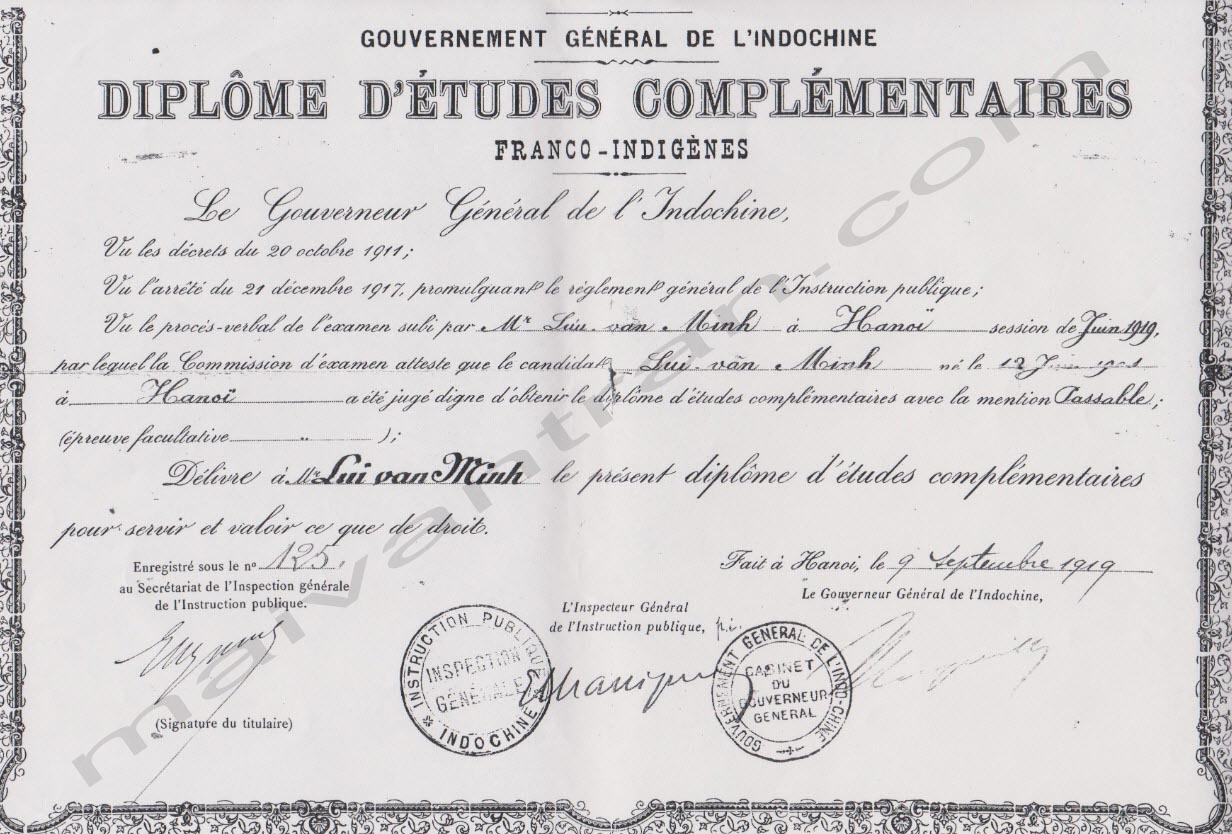 GOUVERNEMENT GÉNÉRAL DE L'INDOCHINE
DIPLÔME D'ÉTUDES COMPLÉMENTAIRES
FRANCO-INDIGÈNES
Le Gouverneur Général de l'Indochine,
Vu les décrets du 20 octobre 1911;
Vu l'arrêté du 21 décembre 1917, promulguant le règlement général de l'Instruction publique;
Vu le procès-verbal de l'examen subi par Mr Lüu-van Minh à Hanoï session de Juin 1919,
par lequel la Commission d'examen atteste que le candidat Lui-van Minh né le 12 Juin
à Hanoï a été jugé digne d'obtenir le diplôme d'études complémentaires avec la mention Passable;
(épreuve facultative „ );
Délivre à Mr Lui van Minh le présent diplôme d'études complémentaires
pour servir et valoir ce que de droit.
Enregistré sous le n° 125.
au Secrétariat de l'Inspection générale
de l'Instruction publique.
(Signature du titulaire)
L'Inspecteur Général
de l'Instruction publique, p.i.
INSTRUCTION PUBLIQUE
INSPECTION
GÉNÉRALE
* INDOCHINE
Fait à Hanoi, le 9 Septembre 1919
Le Gouverneur Général de l'Indochine,
GOUVERNEMENT GENERAL DE L'INDO-CHINE
CABINET
DU
GOUVERNEUR
GENERAL
maivantran.com